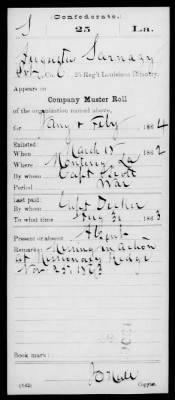 (Confederate.)
S 25 La.
Augustus Sarnazy
Pvt, Co. C, 25 Reg't Louisiana Infantry.
Appears on
Company Muster Roll
of the organization named above,
for Jany & Feby, 1864
Enlisted:
When March 15, 1862
Where Monroe, La
By whom Capt Scott
Period War
Last paid:
By whom Capt Decker
To what time Aug 31, 1863
Present or absent Absent
Remarks: Missing in Action
at Missionary Ridge
Nov 25th 1863
Book mark:
(642) Copyist.